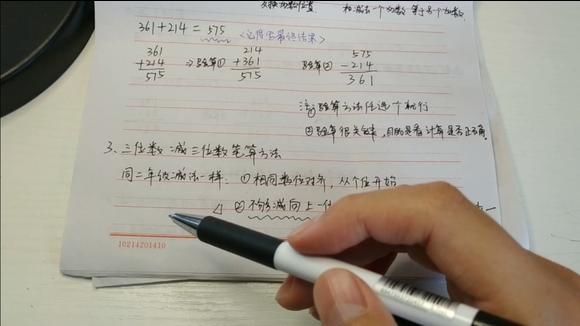 交换加数位置 和减去一个加数等于另一个加数
361+214=575 〈记得写最终结果〉
361 214 575
+214 ⇒验算① +361 验算② -214
575 575 361
注:①验算方法任选一个就行
②验算很关键,目的是看计算是否正确
3、三位数减三位数笔算方法
同二年级减法一样:①相同数位对齐,从个位开始
△ ②不够减向上一位
10214201410